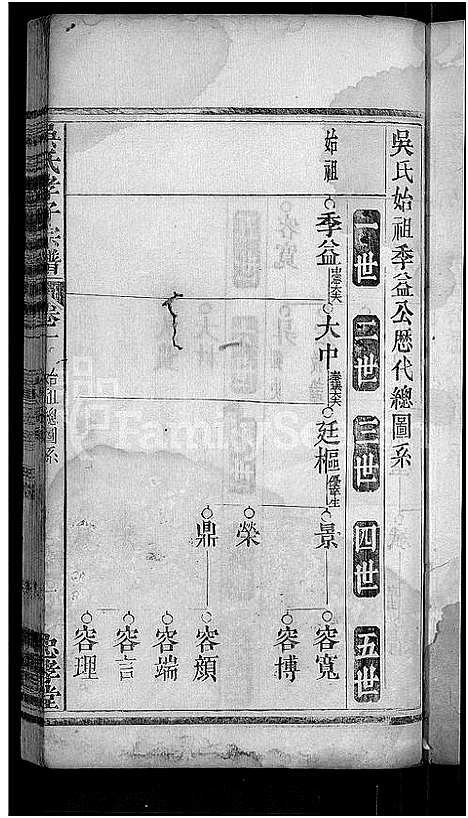 吳氏始祖季益公歷代總圖系
一世 二世 三世 四世 五世
始祖
季益
大中
廷樞
景
容寬
容博
榮
鼎
容顏
容端
容言
容理
吳氏孝子宗譜
卷一
始祖總圖系
忠孝堂
FamilySearch